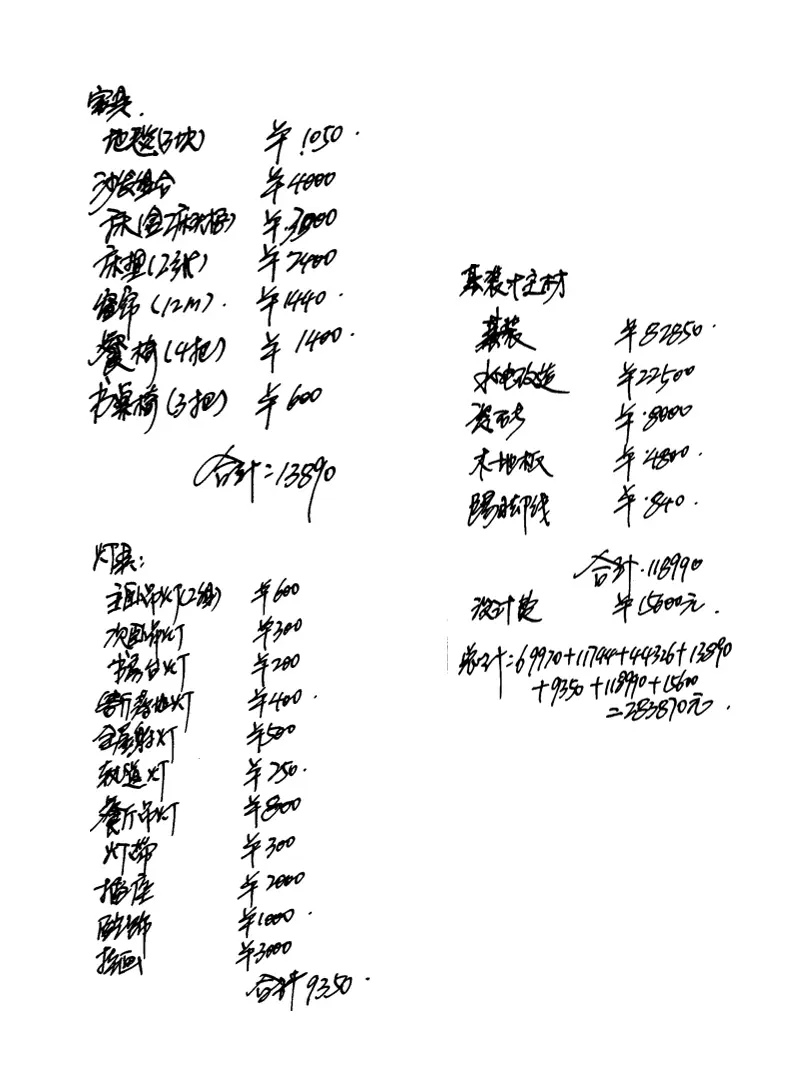 家具.
地毯(3块) ￥1050.
沙发组合 ￥4000
床(含床头柜) ￥3000
床垫(2张) ￥2400
窗帘(12m). ￥1440.
餐椅(4把) ￥1400.
书桌椅(3把) ￥600
合计=13890
灯具:
主卧吊灯(2组) ￥600
次卧吊灯 ￥300
书房台灯 ￥200
客厅落地灯 ￥400.
全屋射灯 ￥500
轨道灯 ￥250.
餐厅吊灯 ￥800
灯带 ￥300
插座 ￥2000
￥1000.
挂画 ￥3000
合计 9350.
基装+主材
基装 ￥82850.
水电改造 ￥22500
瓷砖 ￥8000
木地板 ￥4800.
踢脚线 ￥840.
合计.118990
设计费 ￥15600元.
总计=69970+11744+44326+13890
+9350+118990+15600
=283870元.